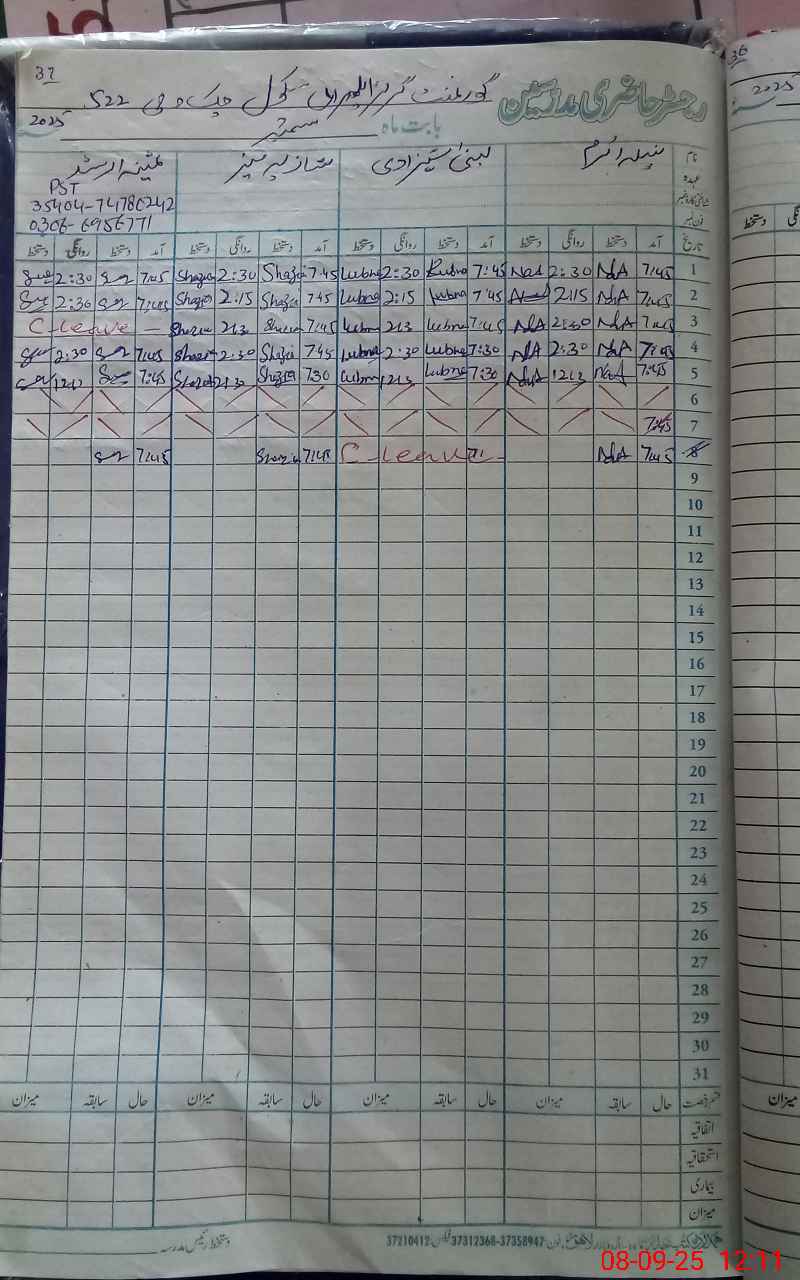 37
36
رجسٹر حاضری مدرسین گورنمنٹ گرلز ایلیمنٹری سکول چک و حی 522
بابت ماہ ستمبر 2025
2025
نام نبیلہ اکرم لبنیٰ شہزادی شازیہ پرویز
عہدہ PST
شناختی کارڈ نمبر 35404-74786242
فون نمبر 0306-6956771
تاریخ آمد دستخط روانگی دستخط آمد دستخط روانگی دستخط آمد دستخط روانگی دستخط آمد دستخط روانگی دستخط
1 7:45 NdA 2:30 NdA 7:45 Lubna 2:30 Lubna 7:45 Shazia 2:30 Shazia 7:45 2:30
2 7:45 NdA 2:15 7:45 Lubna 2:15 Lubna 7:45 Shazia 2:15 Shazia 7:45 2:30
3 7:45 NdA NdA 7:45 Lubna 213 Lubna 7:45 Shazia 213 Shazia C-leave
4 7:45 NdA 2:30 NdA 7:30 Lubna 2:30 Lubna 7:45 Shazia 2:30 Shazia 7:45 2:30
5 7:45 NdA 1213 NdA 7:30 Lubna 1213 Lubna 7:30 Shazia Shazia 7:45
6
7 7:45
8 7:45 NdA C-leave 7:45 Shazia 7:45
9
10
11
12
13
14
15
16
17
18
19
20
21
22
23
24
25
26
27
28
29
30
31
قسم رخصت حال سابقہ میزان حال سابقہ میزان حال سابقہ میزان حال سابقہ میزان
میزان
اتفاقیہ
استحقاقیہ
بیماری
میزان
دستخط رئیس مدرسہ
37358947-37312368 فیکس 37210412
08-09-25 12:11